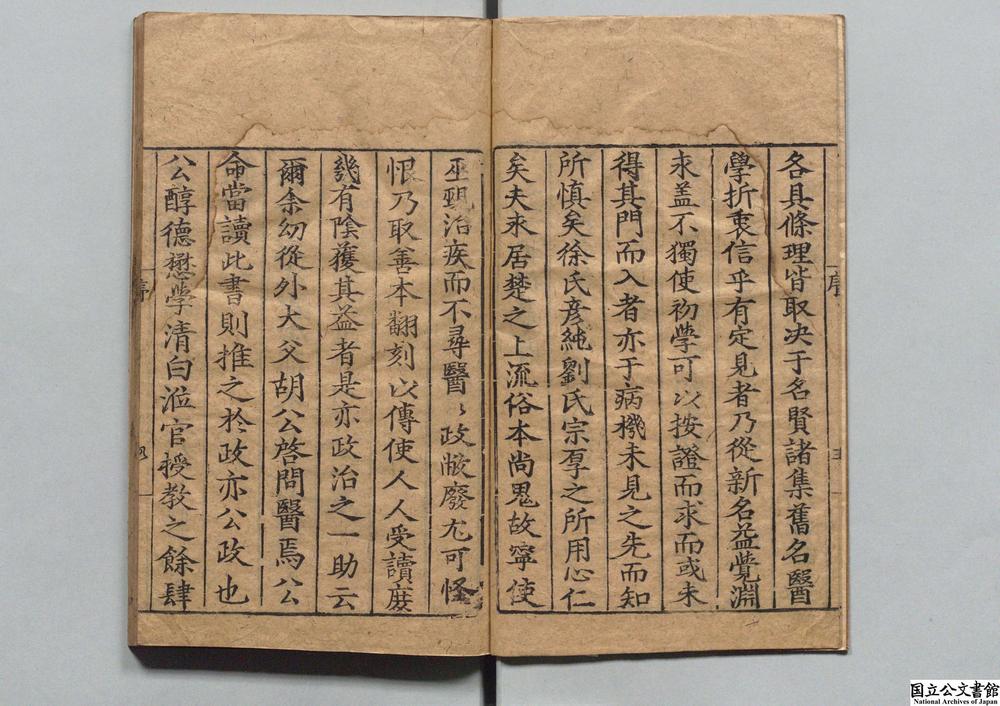 各具條理皆取决于名賢諸集舊名醫
學折衷信乎有定見者乃從新名益覺淵
求盖不獨使初學可以按證而求而或未
得其門而入者亦于病機未見之先而知
所慎矣徐氏彦純劉氏宗厚之所用心仁
矣夫永居楚之上流俗本尚鬼故寧使
巫覡治疾而不尋醫〻政敝廢尤可怪
恨乃取善本翻刻以傳使人人受讀庻
幾有陰獲其益者是亦政治之一助云
爾余幼從外大父胡公啓問醫焉公
命當讀此書則推之於政亦公政也
公醇德懋學清白涖官授教之餘肆
序
序
国立公文書館
National Archives of Japan